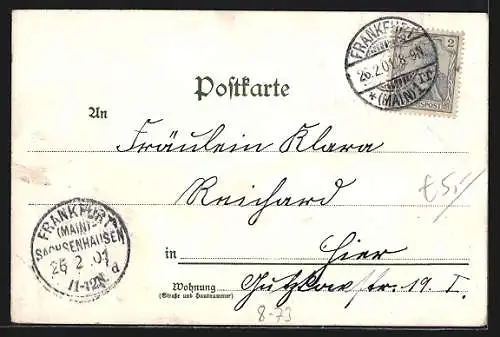 FRANKFURT
26.2.01. 8-9N.
* (MAIN) 1
2
Postkarte
An
Fräulein Klara
Reichard
£5.-
FRANKFURT
(MAIN)-
SACHSENHAUSEN
26 2 01
11-12N
a
in Hier
Wohnung Gutzkowstr. 19. I.
(Straße und Hausnummer)
8-73